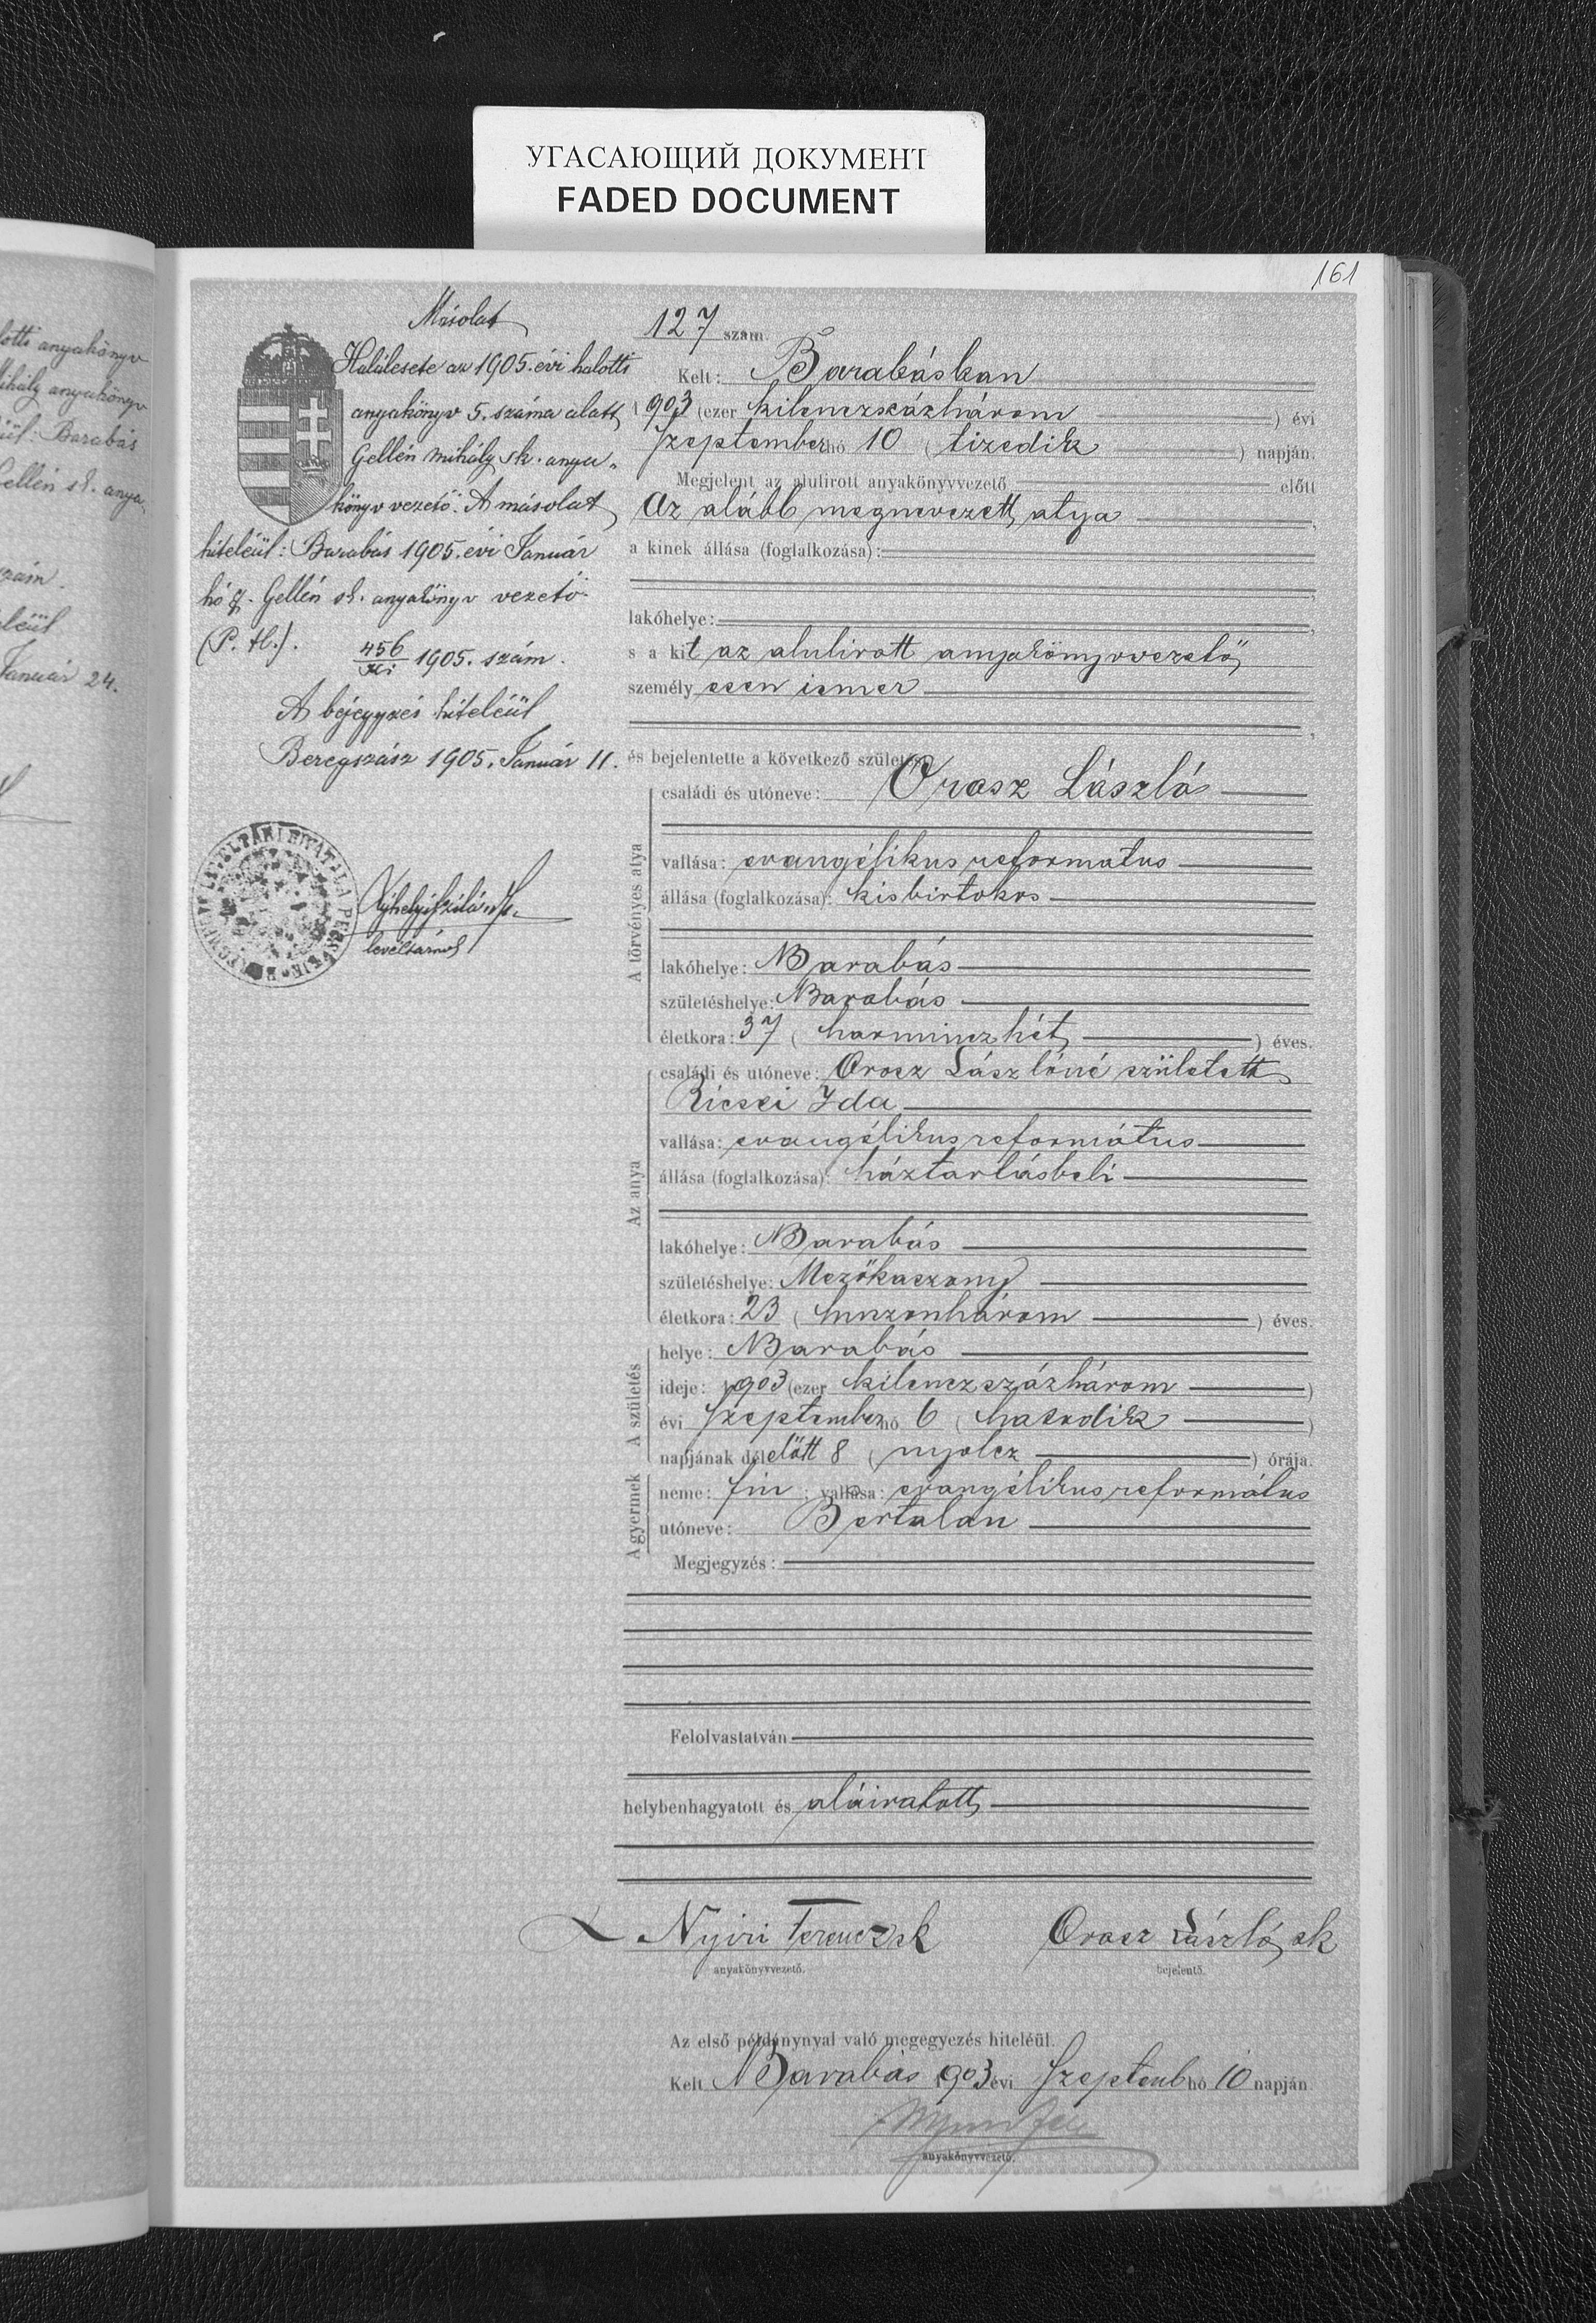 УГАСАЮЩИЙ ДОКУМЕНТ
FADED DOCUMENT
161
lotti anyakönyv
ihály anyakönyv
Barabás
Gellén sk. anya
szám.
Január 24.
Másolat
Halálesete az 1905. évi halotti
anyakönyv 5. száma alatt
Gellén Mihály sk. anya„
könyv vezető. A másolat
hiteléül: Barabás 1905. évi Január
hó 9. Gellén sk. anyakönyv vezető
(P. H.).
456
1905. szám.
A bejegyzés hiteléül
Beregszász 1905. Január 11.
levéltárnok
127 szám.
Kelt: Barabásban
1903 (ezer kilenczszázhárom) évi
Szeptember hó 10 (tizedik) napján.
Megjelent az alulirott anyakönyvvezető előtt
az alább megnevezett atya,
a kinek állása (foglalkozása):
lakóhelye:
s a kit az alulirott anyakönyvvezető
személyesen ismer
és bejelentette a következő születést:
A törvényes atya
családi és utóneve: Orosz László
vallása: evangélikus református
állása (foglalkozása): kisbirtokos
lakóhelye: Barabás
születéshelye: Barabás
életkora: 37 (harminczhét) éves.
Az anya
családi és utóneve: Orosz Lászlóné született
Ricsei Ida
vallása: evangélikus református
állása (foglalkozása): háztartásbeli
lakóhelye: Barabás
születéshelye: Mezőkaszony
életkora: 23 (huszonhárom) éves.
A születés
helye: Barabás
ideje: 1903 (ezer kilenczszázhárom)
évi Szeptember hó 6 (hatodik)
napjának délelőtt 8 (nyolcz) órája.
A gyermek
neme: fiu; vallása: evangélikus református
utóneve: Bertalan
Megjegyzés:
Felolvastatván
helybenhagyatott és aláiratott
Nyiri Ferencz sk Orosz László sk
anyakönyvvezető. bejelentő.
Az első példánynyal való megegyezés hiteléül.
Kelt Barabás 1903 évi Szeptemb hó 10 napján.
anyakönyvvezető.